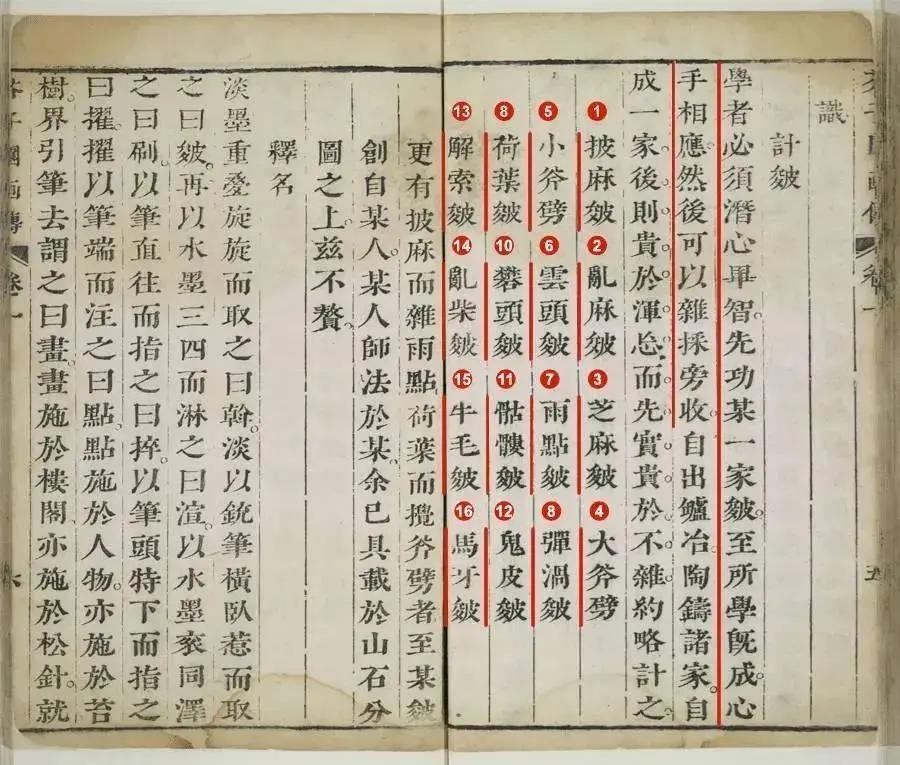 識
計皴
學者必須潛心畢智。先功某一家皴。至所學旣成。心
手相應。然後可以雜採旁收。自出鑪冶。陶鑄諸家。自
成一家。後則貴於渾忘。而先實貴於不雜。約略計之
1 披麻皴 2 亂麻皴 3 芝麻皴 4 大斧劈
5 小斧劈 6 雲頭皴 7 雨點皴 8 彈渦皴
8 荷葉皴 10 礬頭皴 11 骷髏皴 12 鬼皮皴
13 解索皴 14 亂柴皴 15 牛毛皴 16 馬牙皴
更有披麻而雜雨點荷葉而攪斧劈者至某皴
創自某人。某人師法於某。余已具載於山石分
圖之上。玆不贅。
釋名
淡墨重疊旋旋而取之曰斡。淡以銳筆橫臥惹而取
之曰皴。再以水墨三四而淋之曰渲。以水墨衮同澤
之曰刷。以筆直往而指之曰捽。以筆頭特下而指之
曰擢。擢以筆端而注之曰點。點施於人物。亦施於苔
樹。界引筆去謂之曰畫。畫施於樓閣。亦施於松針。就
芥子園画傳 卷一 六